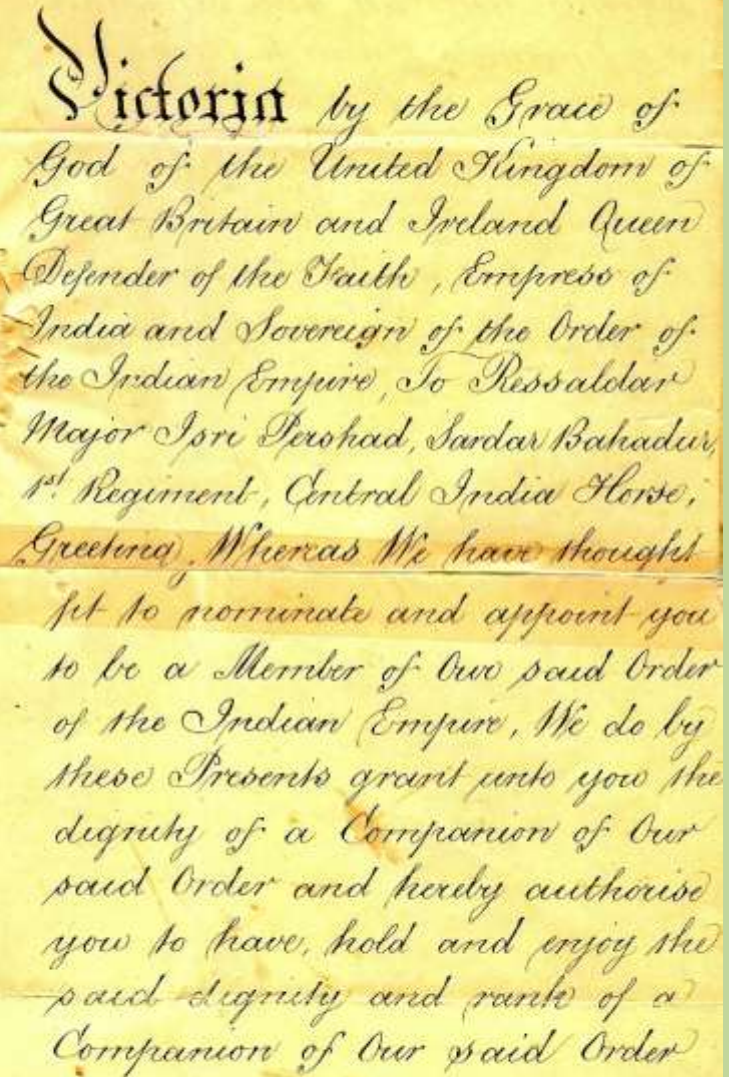 Victoria by the Grace of
God of the United Kingdom of
Great Britain and Ireland Queen
Defender of the Faith, Empress of
India and Sovereign of the Order of
the Indian Empire, To Ressaldar
Major Isri Pershad, Sardar Bahadur,
1st Regiment, Central India Horse,
Greeting, Whereas We have thought
fit to nominate and appoint you
to be a Member of Our said Order
of the Indian Empire, We do by
these Presents grant unto you the
dignity of a Companion of Our
said Order and hereby authorise
you to have, hold and enjoy the
said dignity and rank of a
Companion of Our said Order